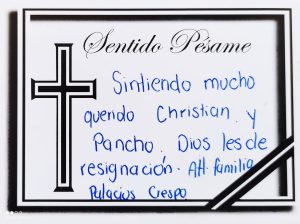 Sentido Pésame
Sintiendo mucho
querido Christian y
Pancho. Dios les de
resignación. Att. familia
Palacius Crespo